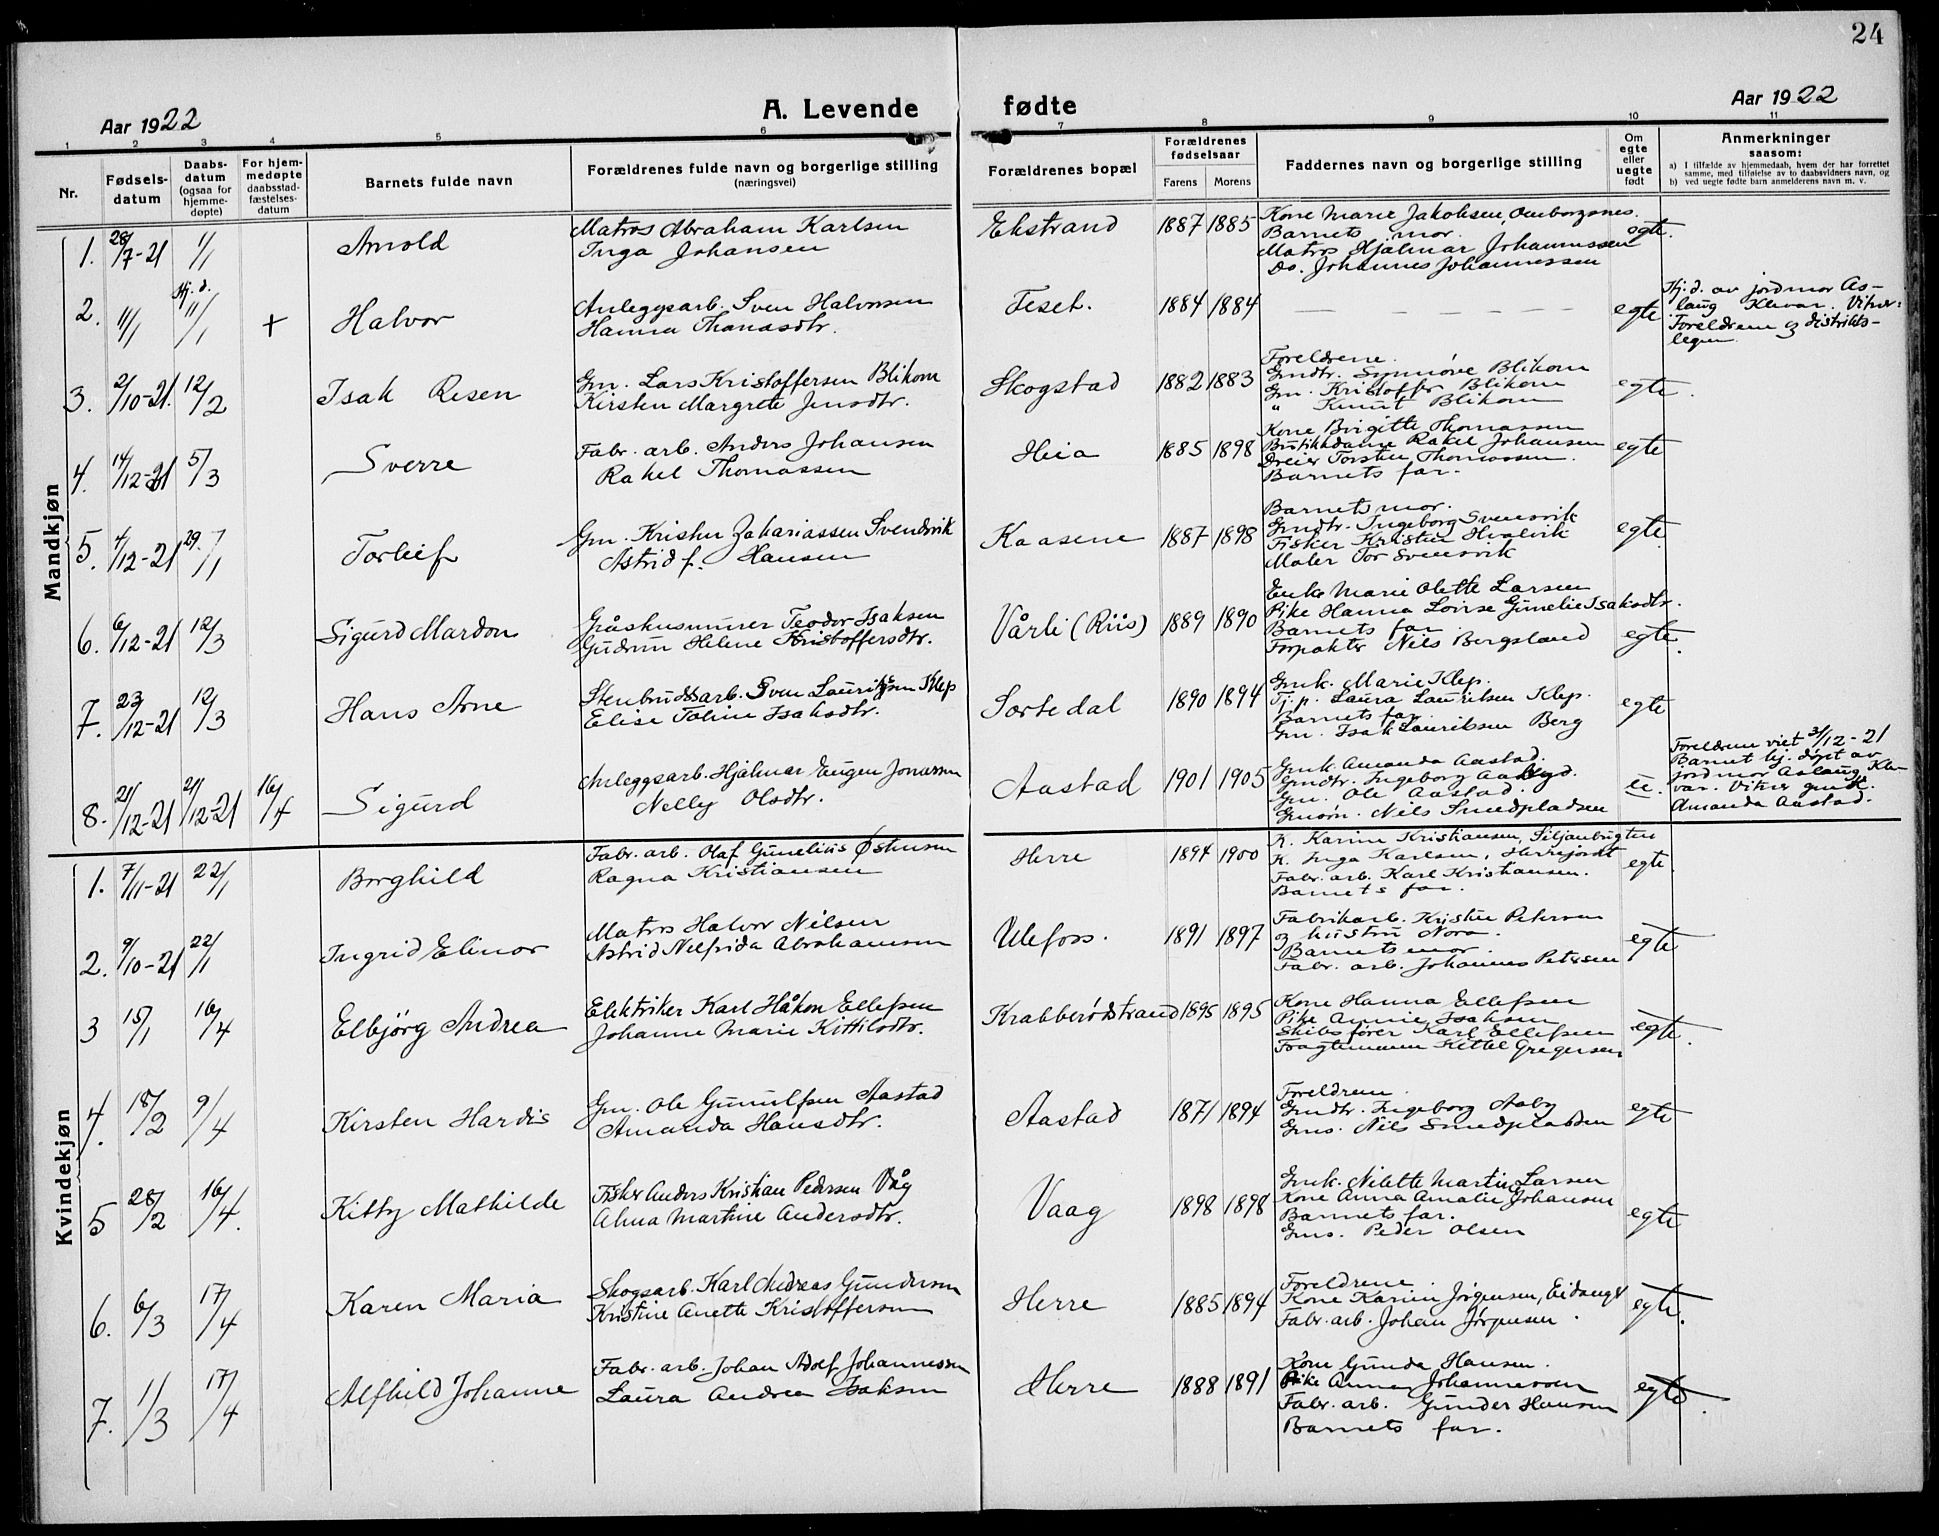 24
Aar 1922
A. Levende fødte
Aar 1922
1 2 3 4 5 6 7 8 9 10 11
Nr.
Fødsels-
datum
Daabs-
datum
(ogsaa for
hjemme-
døpte)
For hjem-
medøpte
daabsstad-
fæstelses-
datum
Barnets fulde navn
Forældrenes fulde navn og borgerlige stilling
(næringsvei)
Forældrenes bopæl
Forældrenes
fødselsaar
Farens Morens
Faddernes navn og borgerlige stilling
Om
egte
eller
uegte
født
Anmerkninger
saasom:
a) I tilfælde av hjemmedaab, hvem der har forrettet
samme, med tilføielse av to daabsvidners navn, og
b) ved uegte fødte barn anmelderens navn m. v.
Mandkjøn
1. 28/7-21 1/1 Arnold
Matros Abraham Karlsen
Inga Johansen
Ekstrand 1887 1885
Kone Marie Jakobsen, Omborgsnes.
Barnets mor.
Matros Hjalmar Johannessen
Do. Johannes Johannessen
egte.
2. 11/1 Hj.d. 11/1 + Halvor
Anleggsarb. Sven Halvorsen
Hanna Thomasdtr.
Teset. 1884 1884
— — — — — —
egte
Hj.d. av jordmor As-
laug Klevar. Vitner:
Foreldrene og distrikts-
legen.
3. 2/10-21. 12/2 Isak Resen
Gm. Lars Kristoffersen Blikom
Kirsten Margrete Jensdtr.
Skogstad 1882 1883
Foreldrene.
Gmdtr. Synnøve Blikom
Gm. Kristoffer Blikom
" Knut Blikom
egte.
4. 14/12-21 5/3 Sverre
Fabr. arb. Anders Johansen
Rakel Thomassen
Heia 1885 1898
Kone Birgitte Thomassen
Butikkdame Rakel Johansen
Dreier Torsten Thomassen.
Barnets far.
egte
5. 4/12-21 29./1 Torleif
Gm. Kristen Zakariassen Svendsvik
Astrid f. Hansen
Kaasene 1887 1898
Barnets mor.
Gmdtr. Ingeborg Svensvik
Fisker Kristen Hvalvik
Maler Tor Svensvik
egte.
6. 6/12-21 12/3 Sigurd Mardon
Gråshusmurer Teodor Isaksen
Gudrun Helene Kristoffersdtr.
Vårli (Riis) 1889 1890
Enke Marie Olette Larsen
Pike Hanna Lovise Gunelie Isaksdtr.
Barnets far.
Forpakter Nils Bergsland
egte.
7. 23/12-21 12/3 Hans Arne
Stenbruddsarb. Sven Lauritssen Klep
Elise Toline Isaksdtr.
Sortedal 1890 1894
Gmk. Marie Klep.
Tj.p. Laura Lauritsen Klep.
Barnets far.
Gm. Isak Lauritssen Berg
egte
8. 21/12-21 21/12-21 16/4 Sigurd
Anleggsarb. Hjalmar Eugen Jonassen
Nelly Olsdtr.
Aastad 1901 1905
Gmk. Amanda Aastad.
Gmdtr. Ingeborg
Gm. Ole Aastad.
Gmsøn. Nils Smedpladsen
u.
Foreldrene viet 31/12-21
Barnet hj. døpt av
jordmor Aslaug Kle-
var. Vitner gmk.
Amanda Aastad.
Kvindekjøn
1. 7/11-21 22/1 Borghild
Fabr. arb. Olaf Gunelius Østensen
Ragna Kristiansen
Herre 1894 1900
K. Karine Kristiansen, Siljanbugten
K. Inga Karlsen, Herrefjordt
Fabr. arb. Karl Kristiansen.
Barnets far.
egte.
2. 9/10-21 22/1 Ingrid Elinor
Matros Halvor Nilsen
Astrid Nelfrida Abrahamsen
Ulefoss. 1891 1897
Fabrikarb. Kristen Petersen
og hustru Nora.
Barnets mor.
Fabr. arb. Johannes Petersen
egte
3 15/1 16/4 Elbjørg Andrea
Elektriker Karl Håkon Ellefsen
Johanne Marie Kittilsdtr.
Krabberødstrand 1895 1895
Kone Hanna Ellefsen
Pike Annie Isaksen
Skibsfører Karl Ellefsen
Fragtemann Kittel Gregersen
egte.
4. 18/2 9/4 Kirsten Hardis
Gm. Ole Gunulfsen Aastad
Amanda Hansdtr.
Aastad 1871 1894
Foreldrene.
Gmdtr. Ingeborg Aaby
Gms. Nils Smedpladsen
egte
5 28/2 16/4. Kitty Mathilde
Fisker Anders Kristian Pedersen Våg
Alma Martine Andersdtr.
Vaag 1898 1898
Gmk. Nilette Martine Larsen
Kone Anna Amalie Johansen
Barnets far.
Gms. Peder Olsen
egte
6. 6/3 17/4 Karen Maria
Skogsarb. Karl Andreas Gundersen
Kristine Anette Kristoffersen
Herre 1885 1894
Foreldrene.
Kone Karen Jørgensen, Eidanger
Fabr. arb. Johan Jørgensen.
egte.
7. 1/3 17/4 Alfhild Johanne
Fabr. arb. Johan Adolf Johannessen
Laura Andrea Isaksen
Herre 1888 1891
Kone Gunda Hansen.
Pike Anna Johannessen
Fabr. arb. Gunder Hansen
Barnets far.
egte.